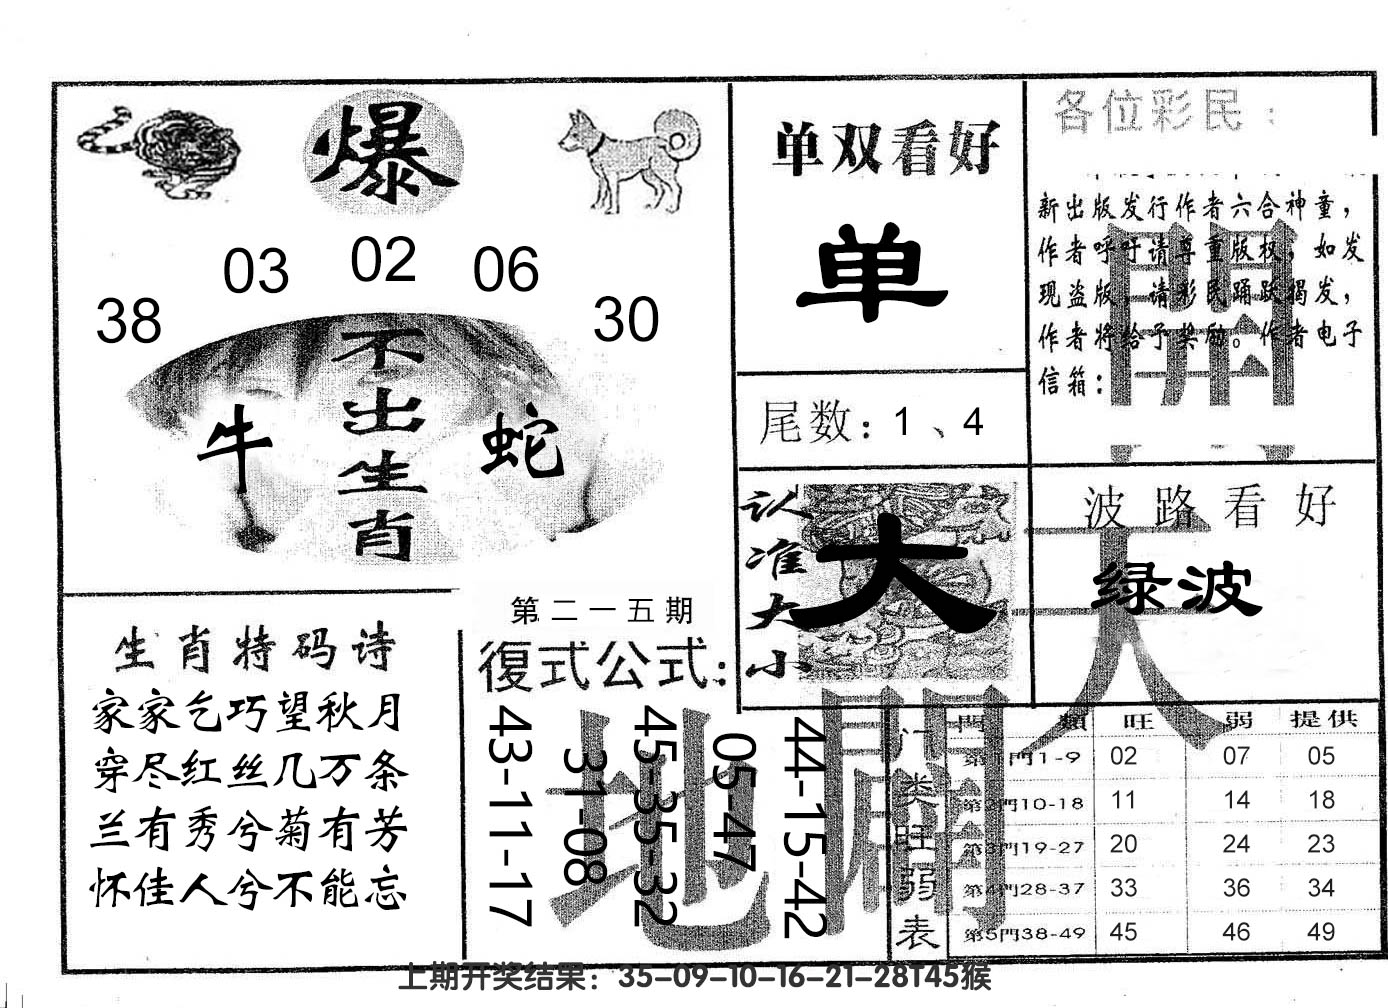 爆
38 03 02 06 30
不出生肖
牛 蛇
单双看好
单
尾数：1、4
各位彩民：
新出版发行作者六合神童，
作者呼吁请尊重版权，如发
现盗版，请彩民踊跃揭发，
作者将给予奖励。作者电子
信箱：
認准大小
大
波路看好
绿波
生肖特码诗
家家乞巧望秋月
穿尽红丝几万条
兰有秀兮菊有芳
怀佳人兮不能忘
第二一五期
復式公式：
43-11-17
31-08
45-35-32
05-47
44-15-42
開
天
地
闢
门类旺弱表
門類 旺 弱 提供
第1門1-9 02 07 05
第2門10-18 11 14 18
第3門19-27 20 24 23
第4門28-37 33 36 34
第5門38-49 45 46 49
上期开奖结果：35-09-10-16-21-28T45猴